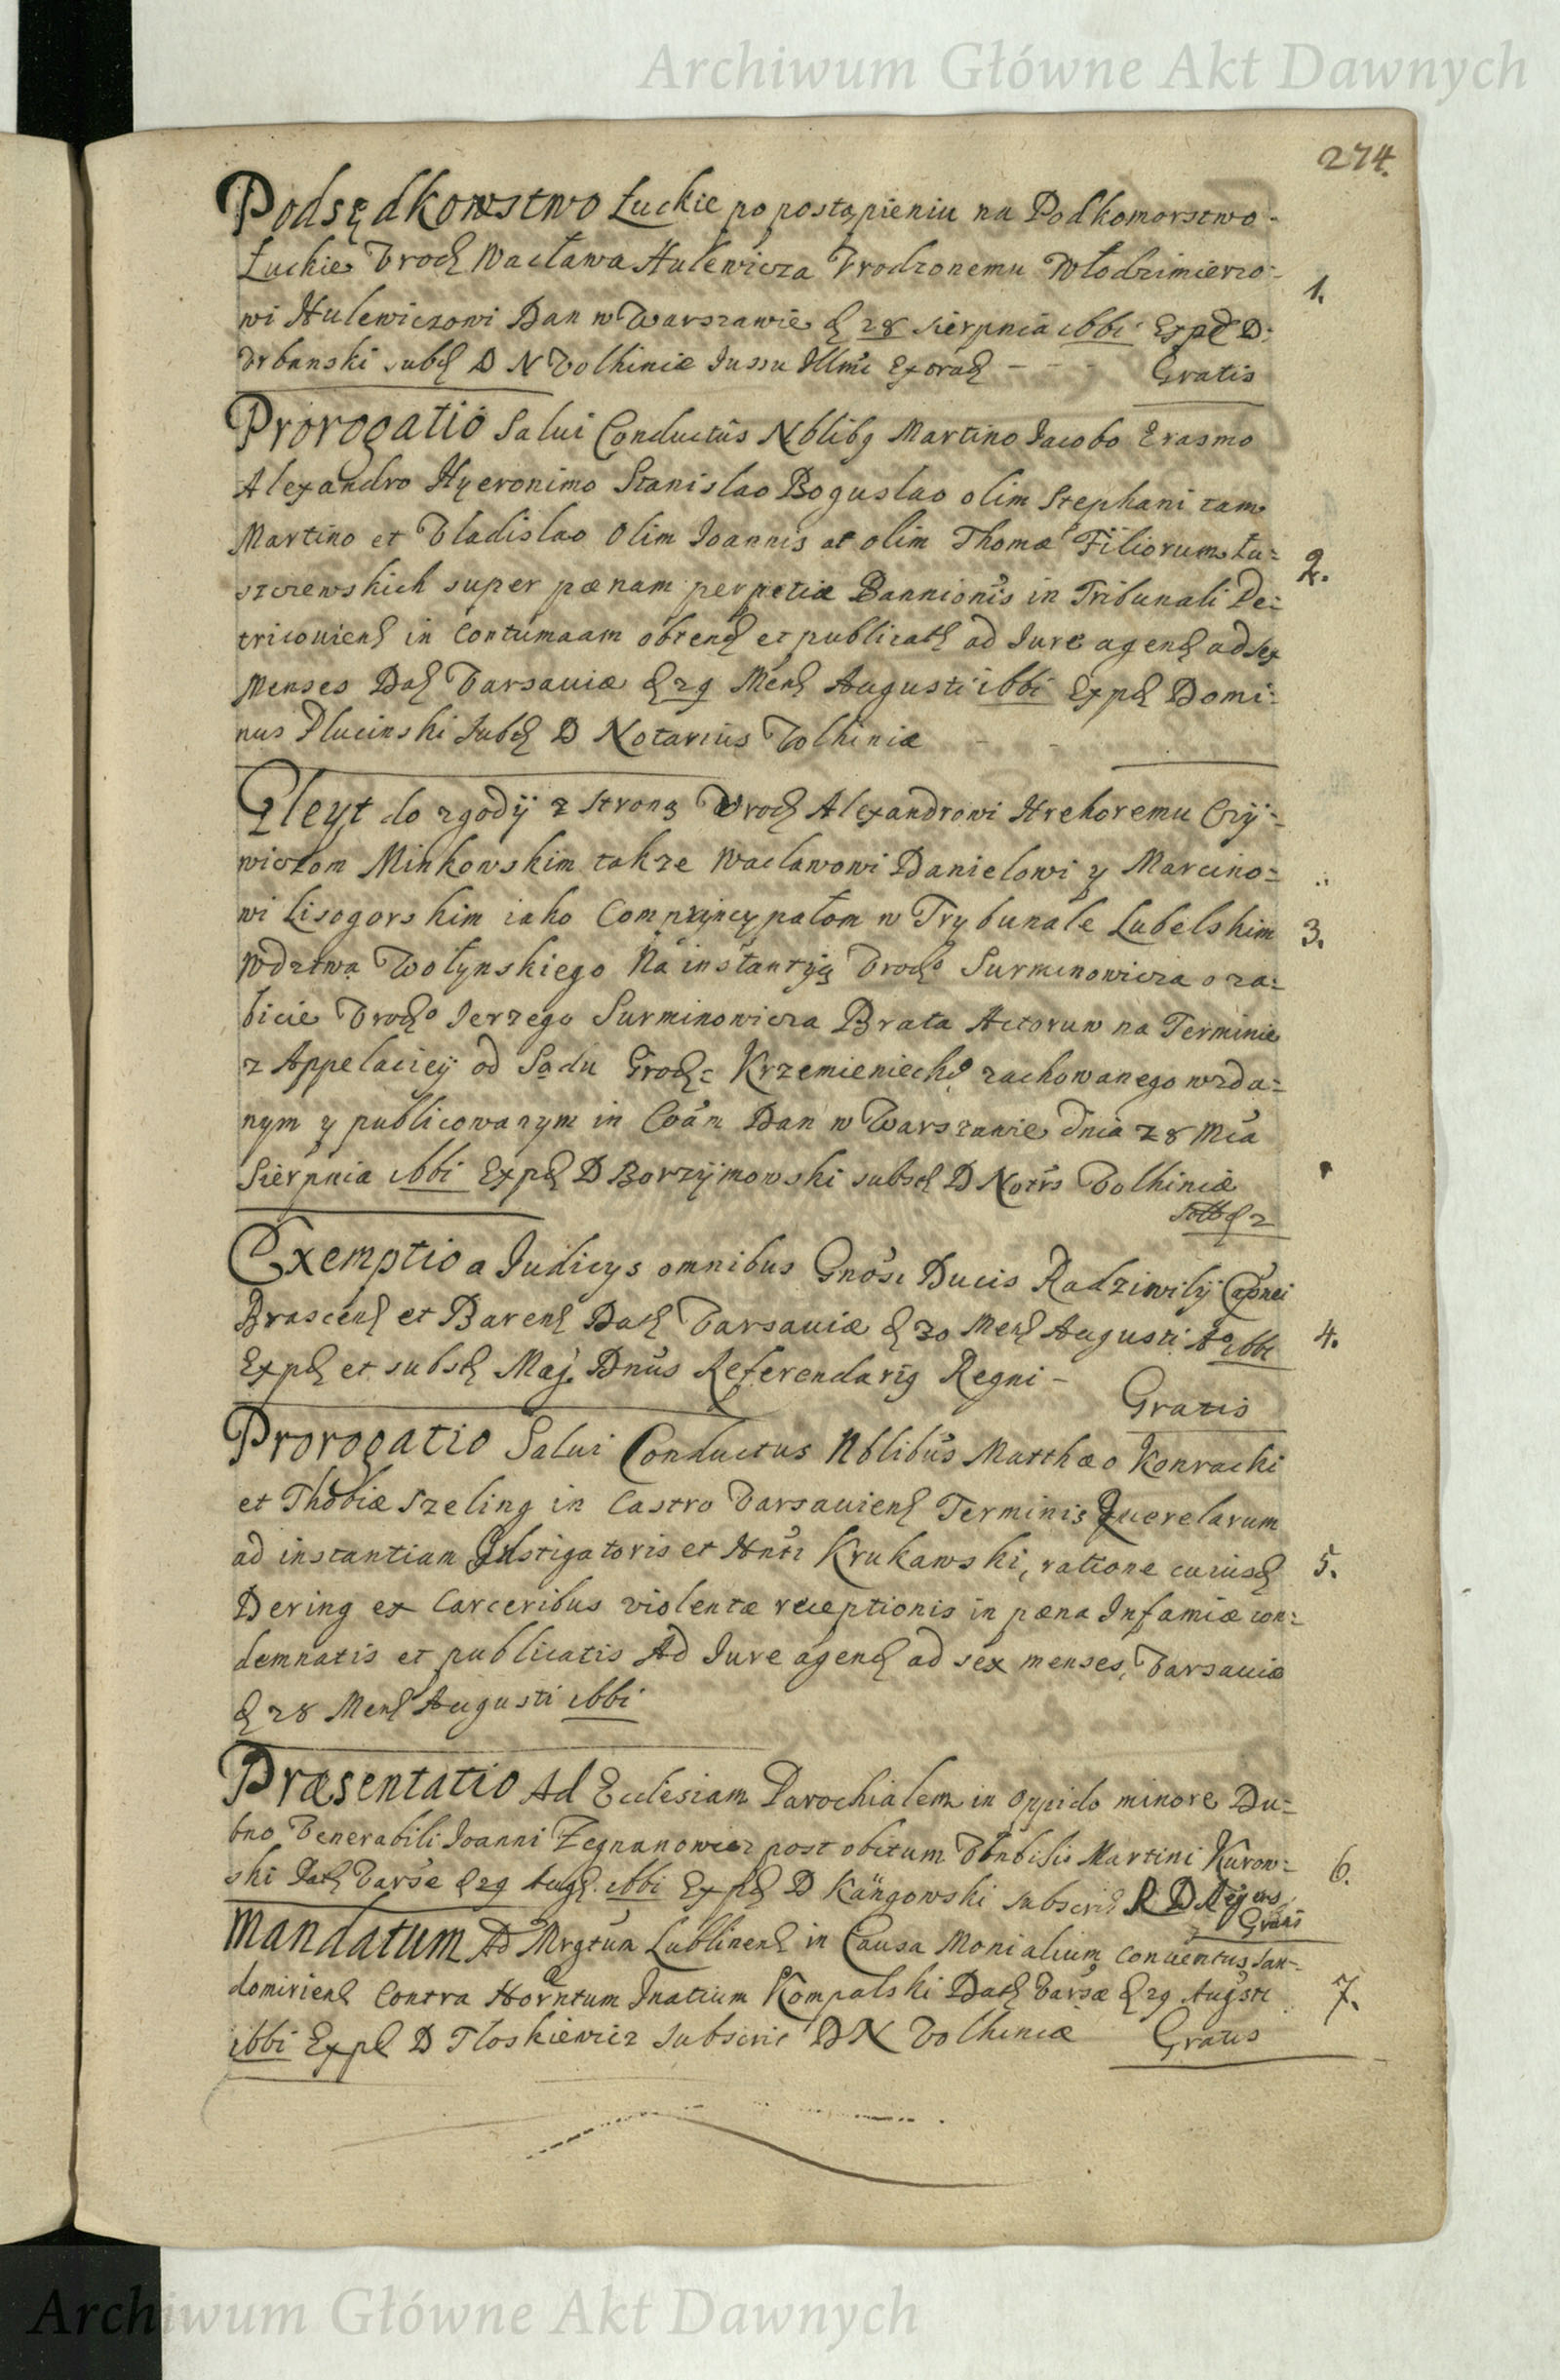 Archiwum Główne Akt Dawnych
274.
Podsędkowstwo Łuckie po postąpieniu na Podkomorstwo-
Łuckie Vrodz Wacława Hulewicza Vrodzonemu Włodzimierzo=
1.
wi Hulewiczowi Dan w Warszawie d 28 Sierpnia 1661 Exped D:
Vrbanski subs D N Volhiniæ Jussu Illmi
Gratis
Prorogatio Salui Conductus Nblibg Martino Jacobo Erasmo
Alexandro Hyeronimo Stanislao Boguslao olim Stephani tam
Martino et Vladislao Olim Joannis at olim Thomæ Filiorum Łu=
2.
szczewskich super pœnam perpetiæ Bannionis in Tribunali Pe=
tricouien in Contumaam obten et publicat ad Jure agen ad sex
Menses Dat Varsauiæ d 29 Men Augusti 1661 Exp Domi:
nus Plucinski Subs D Notarius Volhiniæ
Gleyt do zgodÿ z Stroną Vrodz Alexandrowi Hrehoremu Czÿ=
wiczom Minkowskim także Wacławowi Danielowi y Marcino=
wi Lisogorskim iako Compryncypałom w Trybunale Lubelskim
3.
Wdztwa Wołynskiego Na instantyą Vrodzo Surminowicza o za=
bicie Vrodzo Jerzego Surminowicza Brata Actorum na Terminie
z Appelaciey od Sądu Grodzc Krzemienieckº zachowanego wzda=
nym y publicowanym in Coăm Dan w Warszawie Dnia 28 Mca
Sierpnia 1661 Exp D Borzÿmowski subsc D Notrs Volhiniæ
Exemptio a Judicys omnibus Gnosi Ducis Radziwilÿ Capnei
Brascen et Baren Dat Varsauiæ d 30 Men Augusti Aº 1661
4.
Exp et subsc Maj. Dnus Referendarig Regni-
Gratis
Prorogatio Salui Conductus Nblibus Matthæo Konracki
et Thobiæ Szeling in Castro Varsauien Terminis Querelarum
ad instantiam Instigatoris et Hnti Krukawski, ratione cuiusd
5.
Dering ex Carceribus violentæ receptionis in pœna Infamiæ con:
demnatis et publicatis Ad Jure agend ad sex menses, Varsauiæ
d 28 Men Augusti 1661
Præsentatio Ad Ecclesiam Parochialem in Oppido minore Du=
bno Venerabili Joanni Zegnanowicz post obitum Vēnbilis Martini Kurow=
6.
ski Dat Varsæ d 29 Aug. 1661 Exp D Kängowski subscri R D
Gratis
Mandatum Ad Mrgtum Lublinen in Causa Monialium conuentus San-
domirien Contra Horntum Inatium Kompalski Dat Varsæ d 29 Augsti
7.
1661 Exp D Tloskiewicz Subscri D N Volhiniæ
Gratis
Archiwum Główne Akt Dawnych